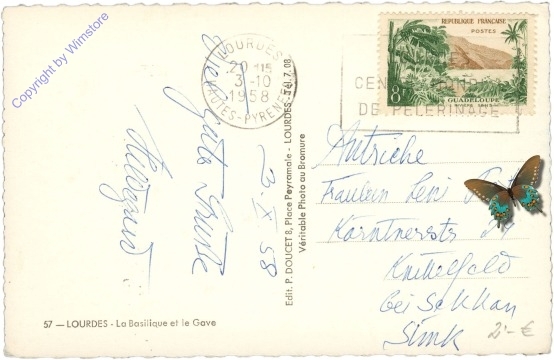 Copyright by Wimstore
LOURDES
20 H 15
3-10
1958
HTES-PYRENEES
REPUBLIQUE FRANÇAISE
POSTES
8F
GUADELOUPE
DE PELERINAGE
Gute Grüße
Hildegard
2.X.58
Edit. P. DOUCET 8, Place Peyramale - LOURDES - Tél. 7.08
Véritable Photo au Bromure
Autriche
Fräulein Leni
Kärntnerstr.
Knittelfeld
bei Sekkau
Stmk
57 — LOURDES - La Basilique et le Gave
2'- €